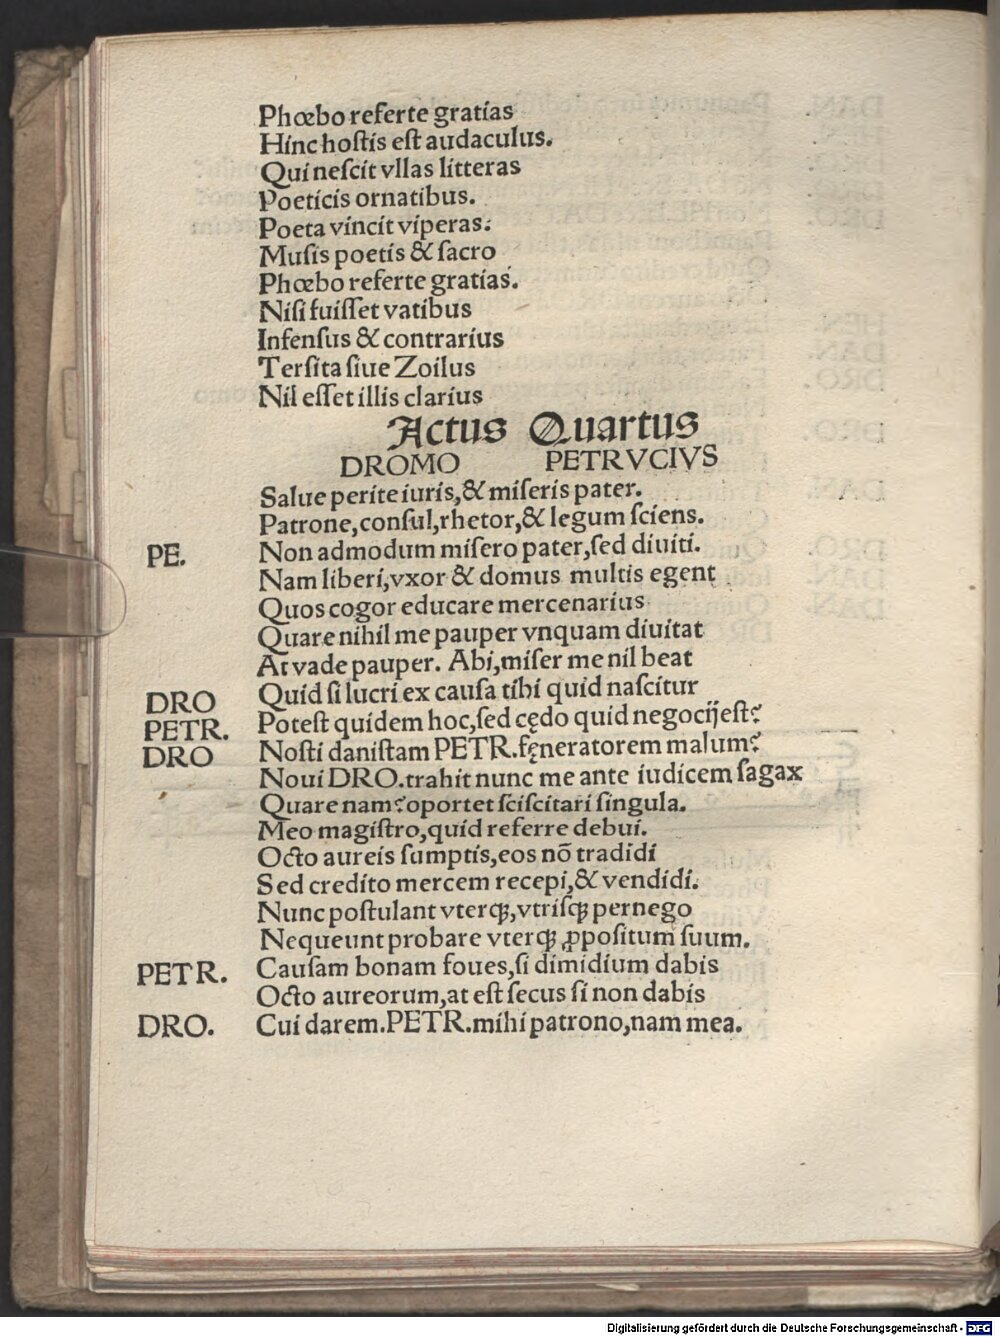 Phœbo referte gratias
Hinc hoſtis eſt audaculus.
Qui neſcit vllas litteras
Poeticis ornatibus.
Poeta vincit viperas:
Muſis poetis & ſacro
Phœbo referte gratias.
Niſi fuiſſet vatibus
Infenſus & contrarius
Terſita ſiue Zoilus
Nil eſſet illis clarius
Actus Quartus
DROMO PETRVCIVS
Salue perite iuris,& miſeris pater.
Patrone,conſul,rhetor,& legum ſciens.
PE. Non admodum miſero pater,ſed diuiti.
Nam liberi,vxor & domus multis egent
Quos cogor educare mercenarius
Quare nihil me pauper vnquam diuitat
At vade pauper. Abi,miſer me nil beat
DRO Quid ſi lucri ex cauſa tibi quid naſcitur
PETR. Poteſt quidem hoc,ſed cędo quid negocij eſt?
DRO Noſti daniſtam PETR.fęneratorem malum?
Noui DRO.trahit nunc me ante iudicem ſagax
Quare nam?oportet ſciſcitari ſingula.
Meo magiſtro,quid referre debui.
Octo aureis ſumptis,eos nō tradidi
Sed credito mercem recepi,& vendidi.
Nunc poſtulant vterqꝫ,vtriſqꝫ pernego
Nequeunt probare vterqꝫ ꝓpoſitum ſuum.
PETR. Cauſam bonam foues,ſi dimidium dabis
Octo aureorum,at eſt ſecus ſi non dabis
DRO. Cui darem.PETR.mihi patrono,nam mea.
Digitalisierung gefördert durch die Deutsche Forschungsgemeinschaft - DFG